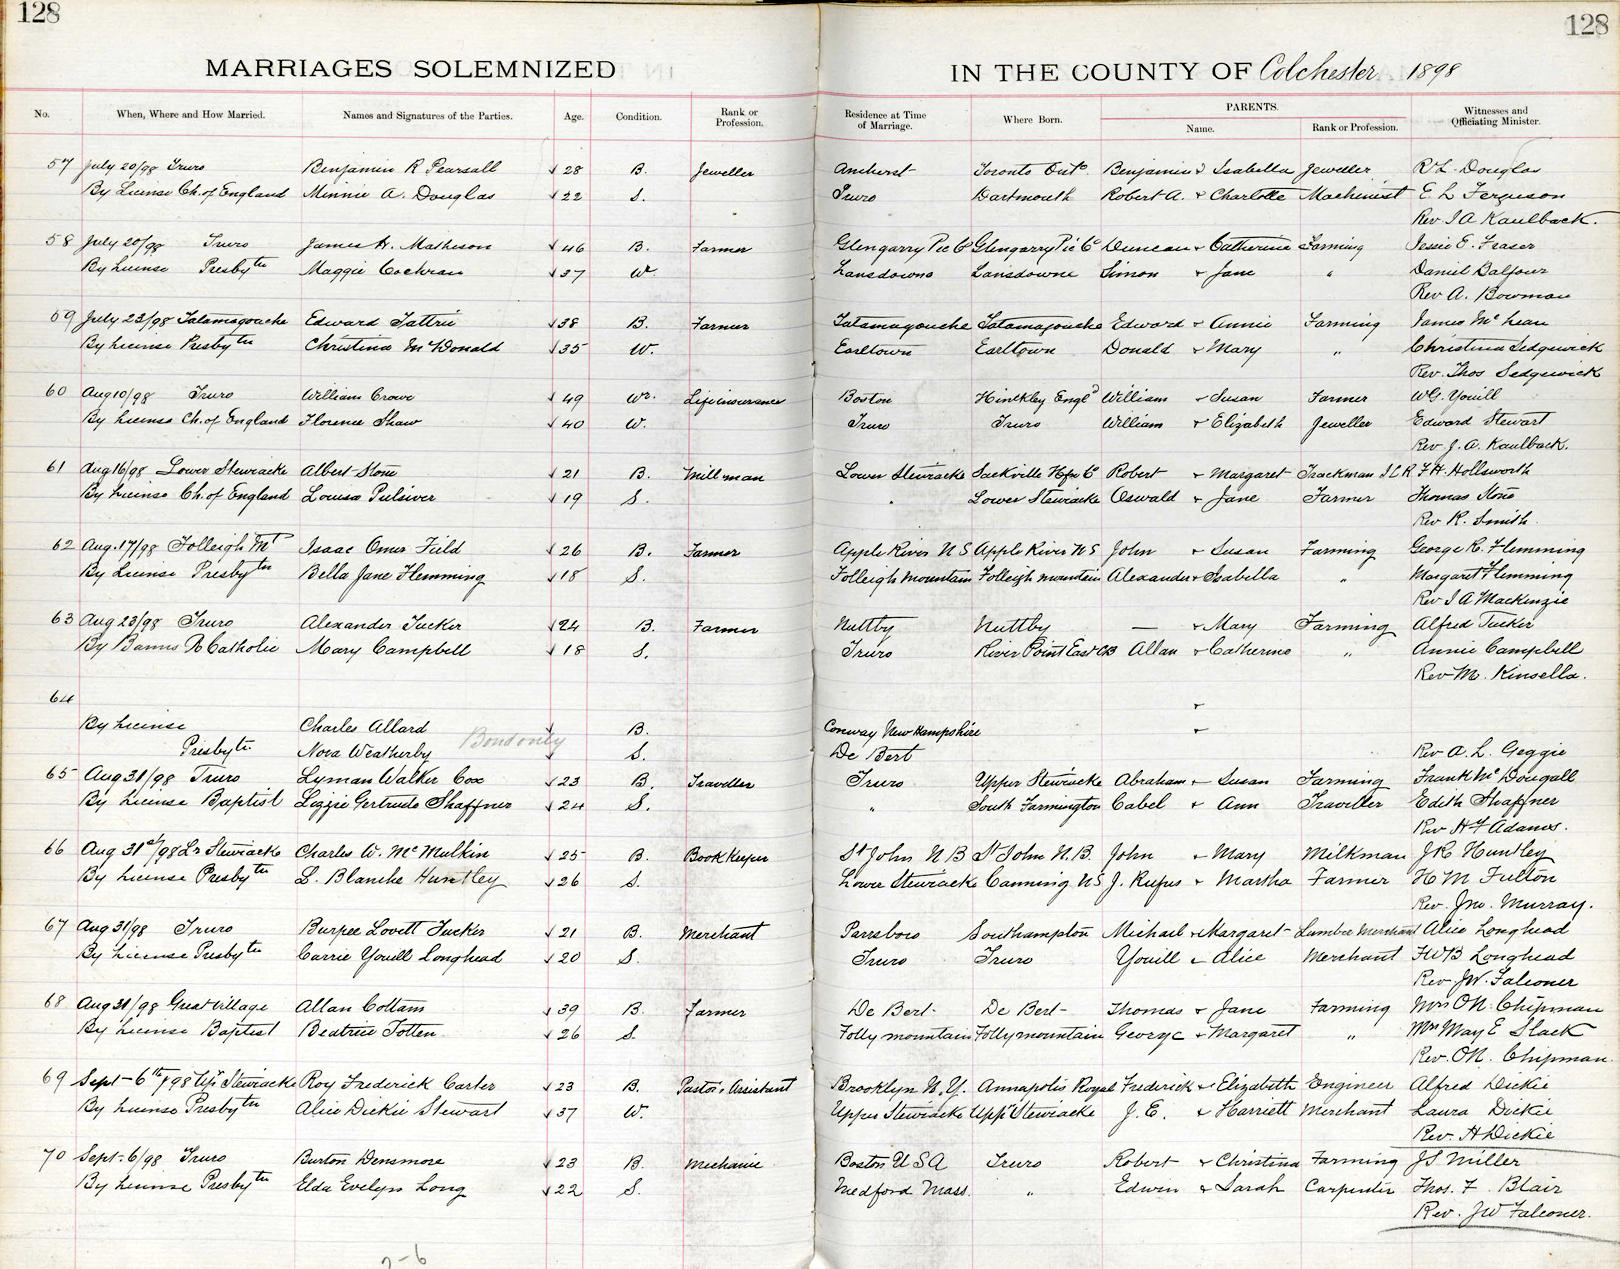 128
128
MARRIAGES SOLEMNIZED
IN THE COUNTY OF Colchester 1898
No. When, Where and How Married. Names and Signatures of the Parties. Age. Condition. Rank or Profession. Residence at Time of Marriage. Where Born. PARENTS. Name. Rank or Profession. Witnesses and Officiating Minister.
57 July 20/98 Truro Benjamin R Pearsall 28 B. Jeweller Amherst Toronto Ont° Benjamin & Isabella Jeweller R L. Douglas
By License Ch. of England Minnie A. Douglas 22 S. Truro Dartmouth Robert A. & Charlotte Machinist E L Ferguson
Rev J A Kaulback
58 July 20/98 Truro James H. Matheson 46 B. Farmer Glengarry Pic C° Glengarry Pic C° Duncan & Catherine Farming Jessie E. Fraser
By License Presbytn Maggie Cochran 37 W. Lansdowne Lansdowne Simon & Jane " Daniel Balfour
Rev A. Bowman
59 July 23/98 Tatamagouche Edward Tattrie 38 B. Farmer Tatamagouche Tatamagouche Edward & Annie Farming James McLean
By License Presbytn Christina McDonald 35 W. Earltown Earltown Donald & Mary " Christina Sedgewick
Rev. Thos Sedgewick
60 Aug 10/98 Truro William Crowe 49 Wr. Life insurance Boston Hinckley Engld William & Susan Farmer W G. Youill
By License Ch. of England Florence Shaw 40 W. Truro Truro William & Elizabeth Jeweller Edward Stewart
Rev J. A. Kaulback.
61 Aug 16/98 Lower Stewiacke Albert Stone 21 B. Millman Lower Stewiacke Sackville Hfx C° Robert & Margaret Trackman I C R F. H. Hollsworth
By License Ch. of England Louisa Pulsiver 19 S. " Lower Stewiacke Oswald & Jane Farmer Thomas Stone
Rev R. Smith.
62 Aug. 17/98 Folleigh Mt Isaac Omer Field 26 B. Farmer Apple River N S Apple River N S John & Susan Farming George R. Flemming
By License Presbytn Bella Jane Flemming 18 S. Folleigh Mountain Folleigh mountain Alexander & Isabella " Margaret Flemming
Rev J A Mackenzie
63 Aug 23/98 Truro Alexander Tucker 24 B. Farmer Nuttby Nuttby — & Mary Farming Alfred Tucker
By Banns R Catholic Mary Campbell 18 S. Truro River Point East CB Allan & Catherine " Annie Campbell
Rev M. Kinsella.
64 &
By License Charles Allard B. Conway New Hampshire &
Presbytn Nova Weatherby Bond only S. De Bert Rev A. L. Geggie
65 Aug 31/98 Truro Lyman Walker Cox 23 B. Traveller Truro Upper Stewiacke Abraham & Susan Farming Frank McDougall
By License Baptist Lizzie Gertrude Shaffner 24 S. " South Farmington Cabel & Ann Traveller Edith Shaffner
Rev H F Adams.
66 Aug 31st/98 Lr Stewiacke Charles W. McMulkin 25 B. Book Keeper St John N B St John N.B. John & Mary Milkman J R Huntley
By License Presbytn L. Blanche Huntley 26 S. Lower Stewiacke Canning N S J. Rufus & Martha Farmer H M Fulton
Rev. Jno. Murray.
67 Aug 31/98 Truro Burpee Lovett Tucker 21 B. Merchant Parrsboro Southampton Michael & Margaret Lumber Merchant Alice Longhead
By License Presbytn Carrie Youill Longhead 20 S. Truro Truro Youill & Alice Merchant F W B Longhead
Rev JW. Falconer
68 Aug 31/98 Great Village Allan Cottam 39 B. Farmer De Bert De Bert Thomas & Jane Farming Mrs O N. Chipman
By License Baptist Beatrice Totten 26 S. Folly mountain Folly mountain George & Margaret " Mrs May E Slack
Rev. O N. Chipman.
69 Sept 6th/98 Upr Stewiacke Roy Frederick Carter 23 B. Pastor's Assistant Brooklyn N. Y. Annapolis Royal Frederick & Elizabeth Engineer Alfred Dickie
By License Presbytn Alice Dickie Stewart 37 W. Upper Stewiacke Uppr Stewiacke J. E. & Harriett Merchant Laura Dickie
Rev. A Dickie
70 Sept. 6/98 Truro Burton Densmore 23 B. Mechanic Boston U S A Truro Robert & Christina Farming J S Miller
By License Presbytn Elda Evelyn Long 22 S. Medford Mass. " Edwin & Sarah Carpenter Thos. F. Blair
Rev. JW Falconer.
2-6